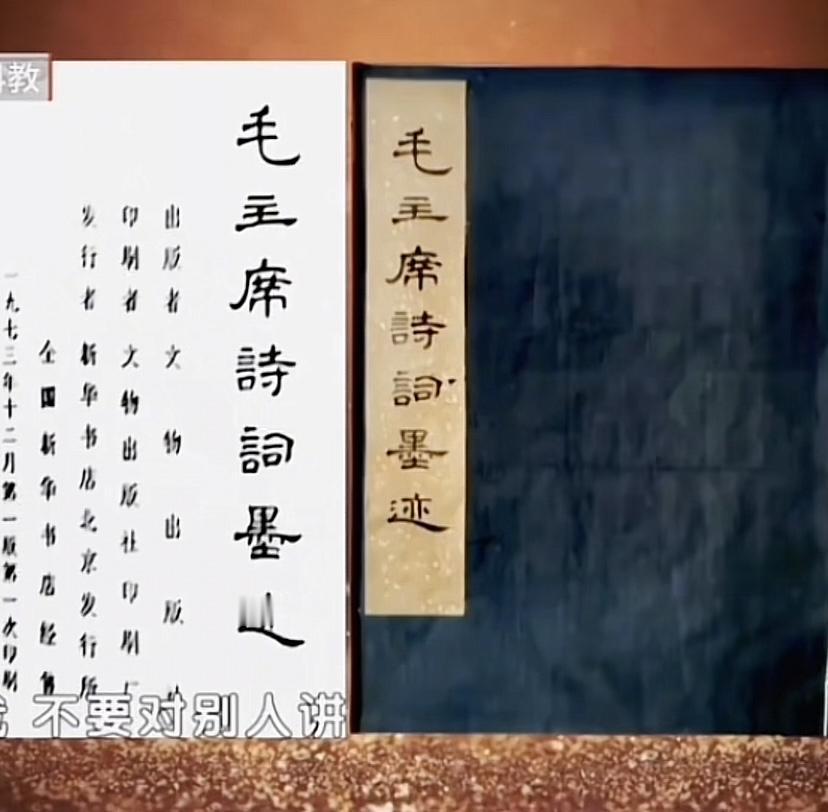 科教
毛主席詩詞墨
出版者 文物出版
印刷者 文物出版社印刷厂
发行者 新华书店北京发行所
全国新华书店经售
一九七三年十二月第一版第一次印刷
毛主席詩詞墨迹
不要对别人讲